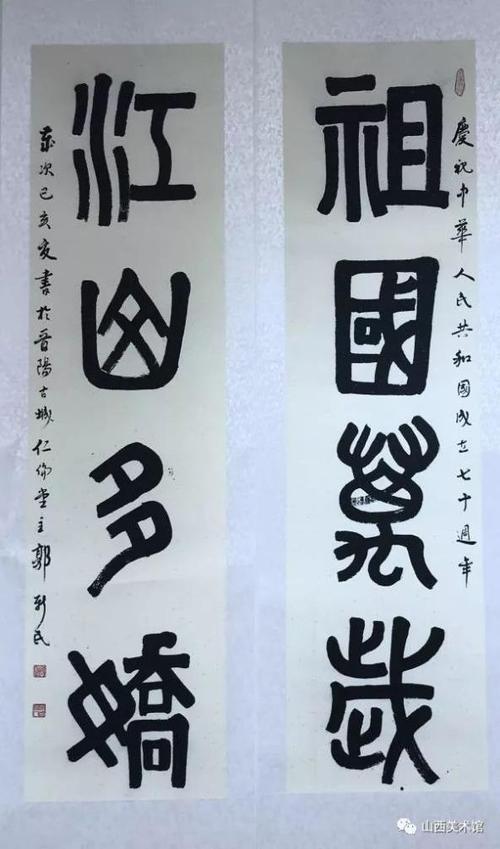 慶祝中華人民共和國成立七十週年
祖國萬歲
江山多嬌
歲次己亥夏書於晉陽古城仁倫堂主郭新民
山西美术馆